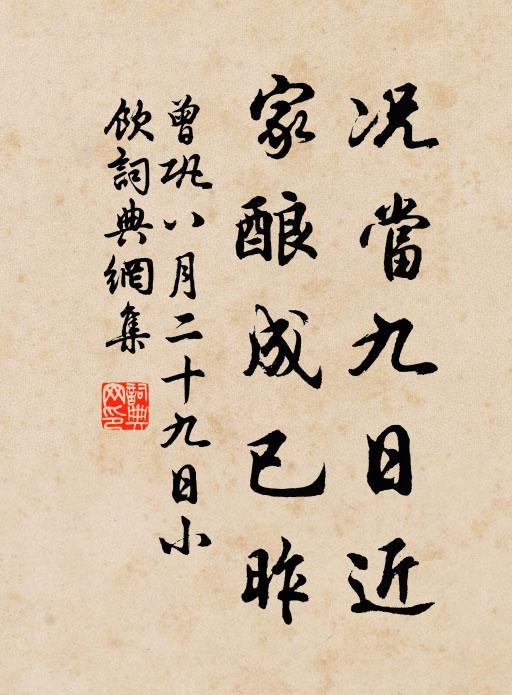 况當九日近
家酿成已昨
曾巩八月二十九日小
飲詞典網集
詞典
网印